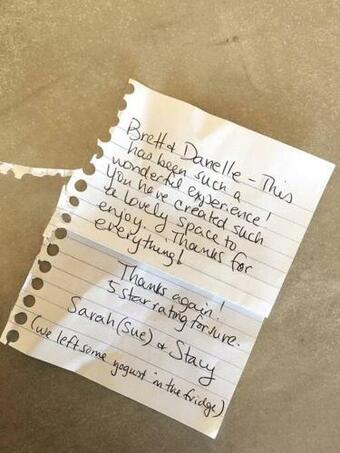 Brett & Danelle - This
has been such a
wonderful experience!
You have created such
a lovely space to
enjoy. Thanks for
everything!
Thanks again!
5 star rating for sure.
Sarah (Sue) & Stacy
(we left some yogurt in the fridge)